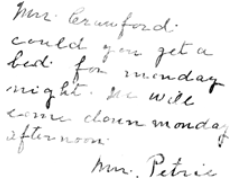 Mrs. Crawford.
could you get a
bed for monday
night. He will
come down monday
afternoon.
Mrs. Petrie